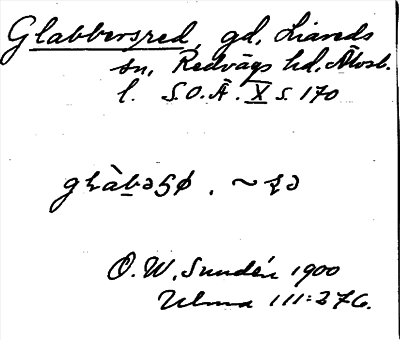 Glabbersred, gd, Liareds
sn, Redvägs hd, Älvsb.
l. S.O.Ä. X s. 170
O. W. Sundén 1900
Ulma 111:276.